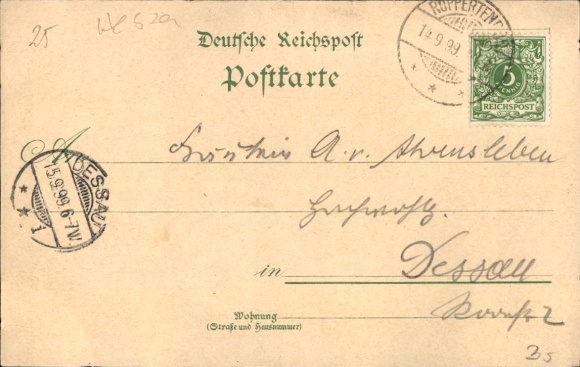 25
Deutsche Reichspost
Postkarte
RUPPERTEN
14.9.99.
5
REICHSPOST
An
Fräulein A. v. Ahrensleben
DESSAU
15.9.99.6-7V.
1
in Dessau
Wohnung
(Straße und Hausnummer)
35